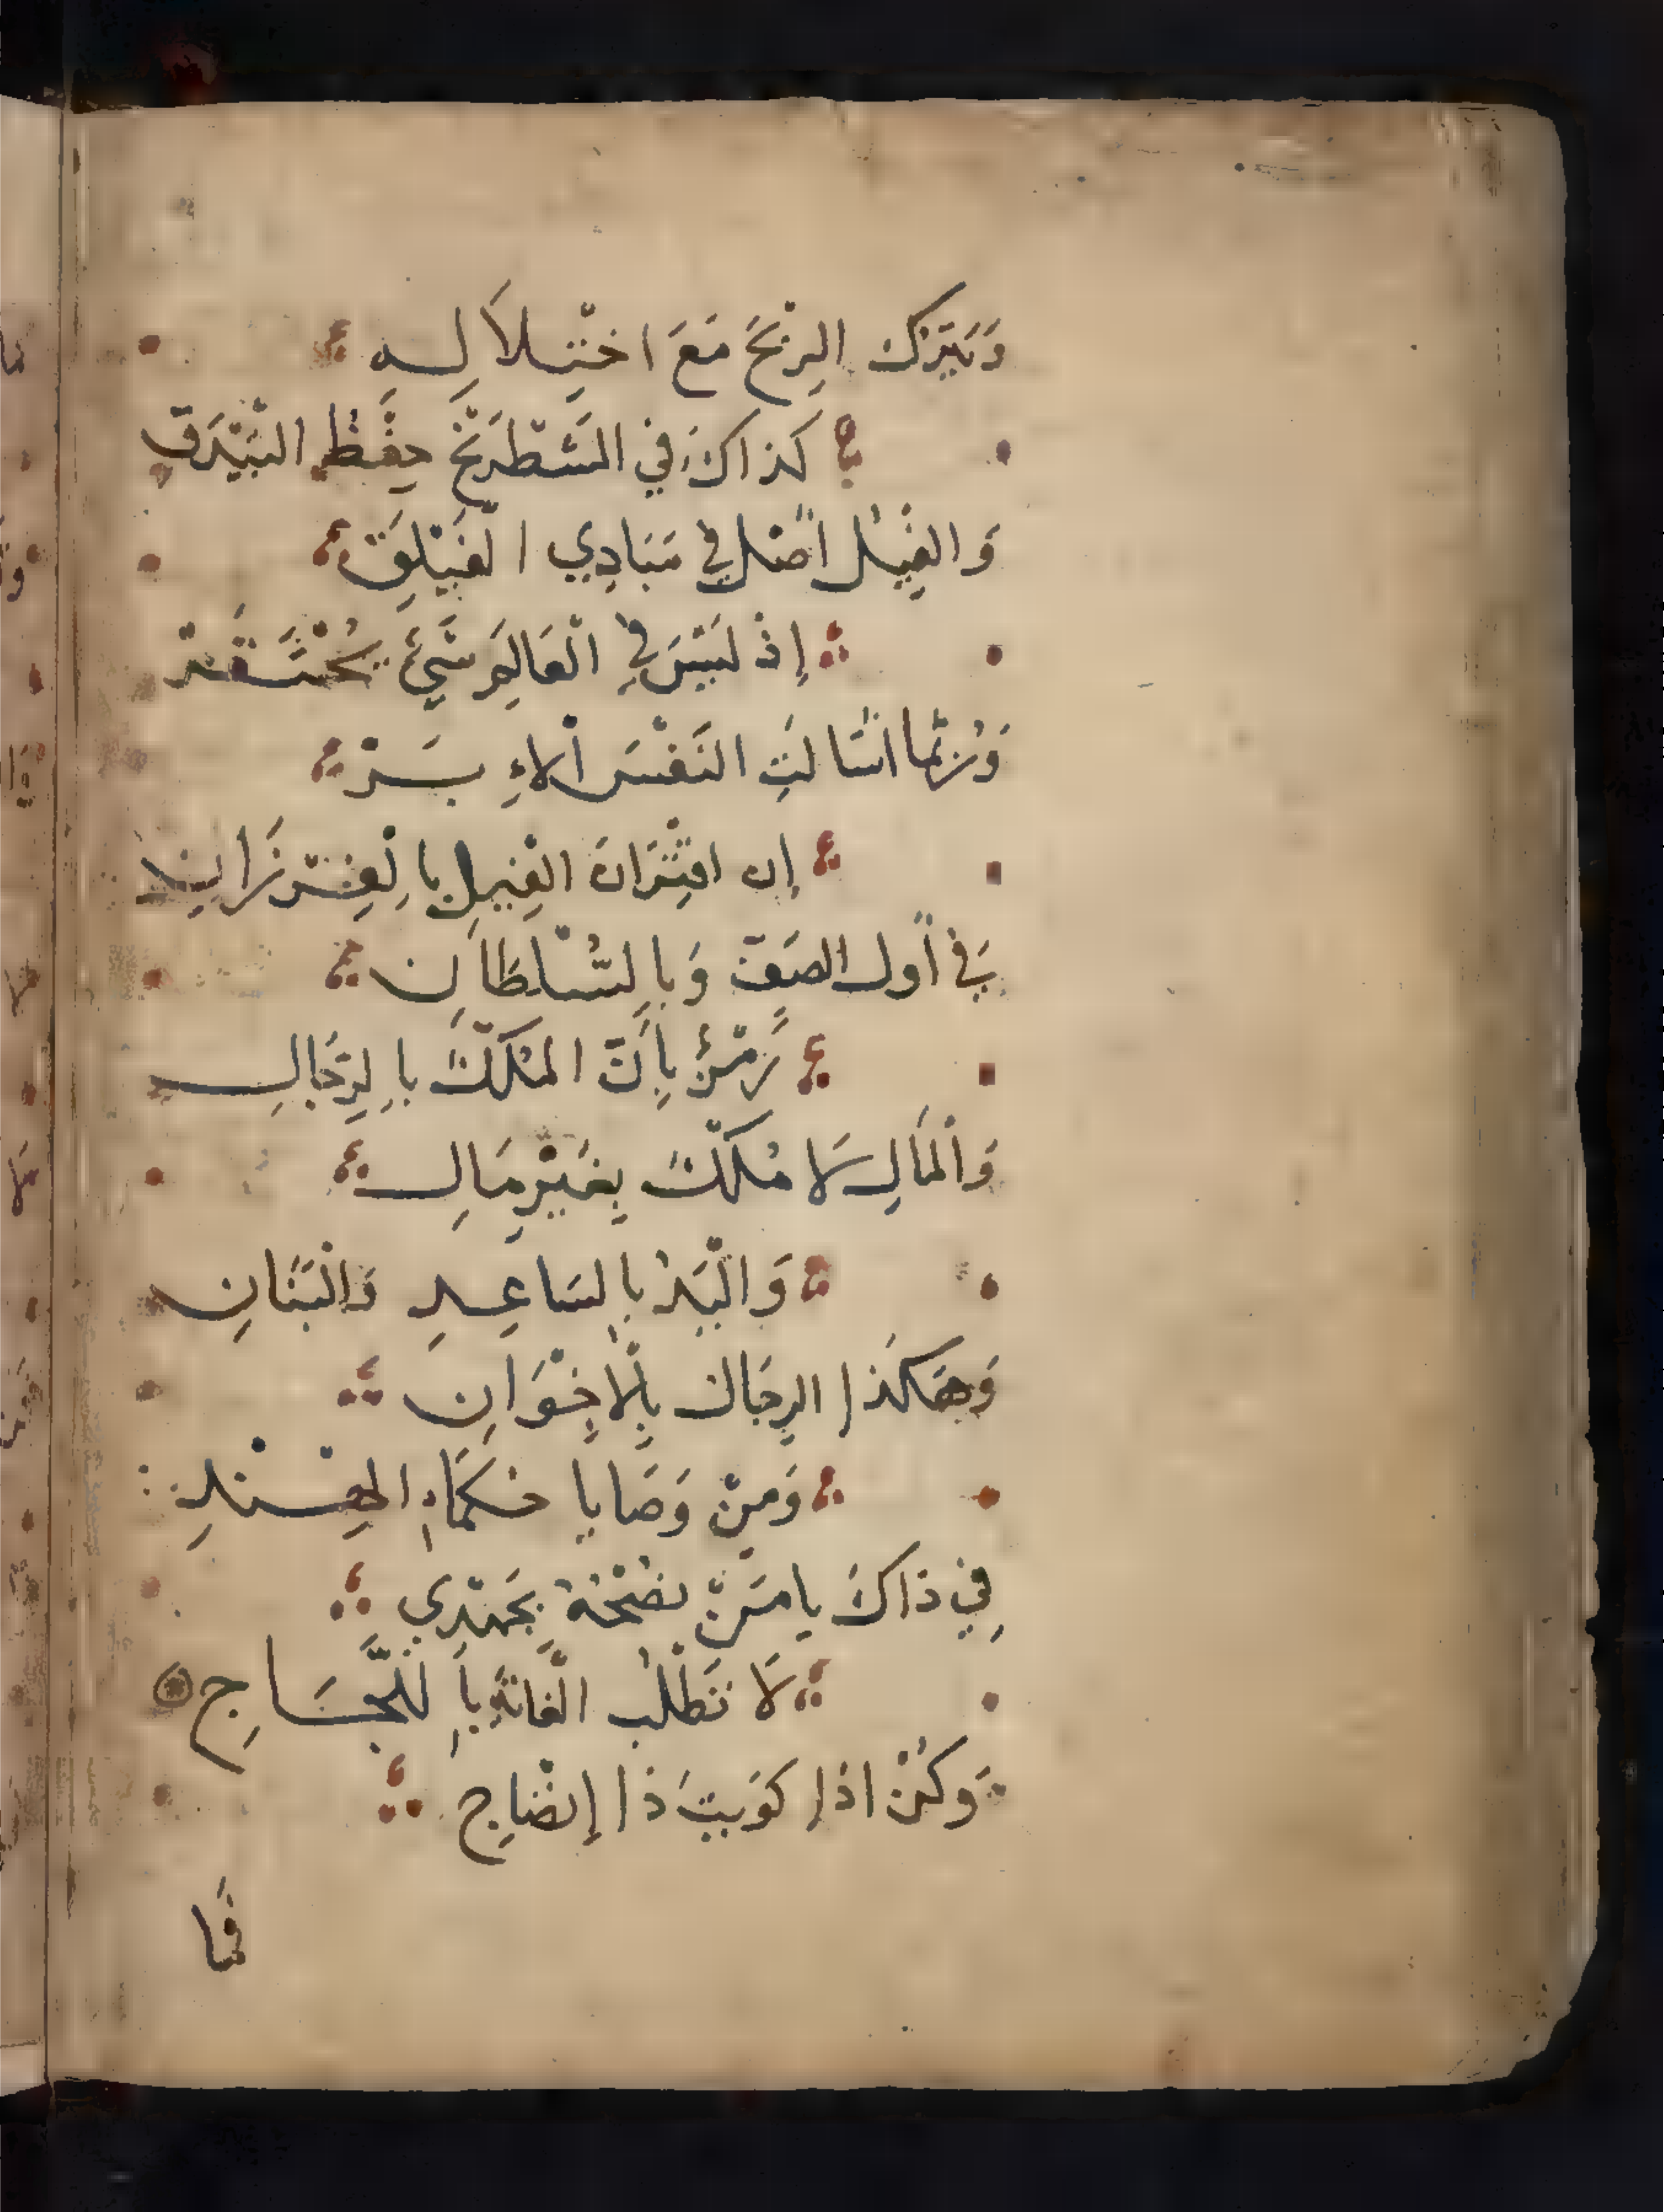 وَيَترُك الرِبْحَ مَعَ اخْتِلَالِهِ
كَذاكَ في الشَطْرَنْجِ حِفْظُ البَيْدَقِ
وَالفِيْلُ أصْلٌ في مَبَادِي الفَيْلَقِ
إذْ لَيْسَ في الْعَالَمِ شَيْءٌ يُحْتَقَرْ
وَرُبَّما أسَالَتِ النَفْسَ الْإِبَرْ
إن اقْتِرَانَ الْفِيلِ بِالْفِرْزَانِ
في أول الصَفِّ وَبِالسُّلْطَانِ
رَمْزٌ بِأَنَّ المُلْكَ بِالرِّجَالِ
وَالْمَالِ لَا مُلْكَ بِغَيْرِ مَالِ
وَالْيَدُ بِالسَاعِدِ وَالْبَنَانِ
وَهَكَذا الرِجَالُ بِالْإِخْوَانِ
وَمِنْ وَصَايا حُكَمَاءِ الهِنْدِ
فِي ذَاكَ يا مَنْ نُصْحَهُ يَجْتَدِي
لَا تَطْلُبِ الْغَايَةَ بِاللَّجَاجِ
وَكُنْ اذا كَوَيتَ ذا إنْضَاجِ
فَما